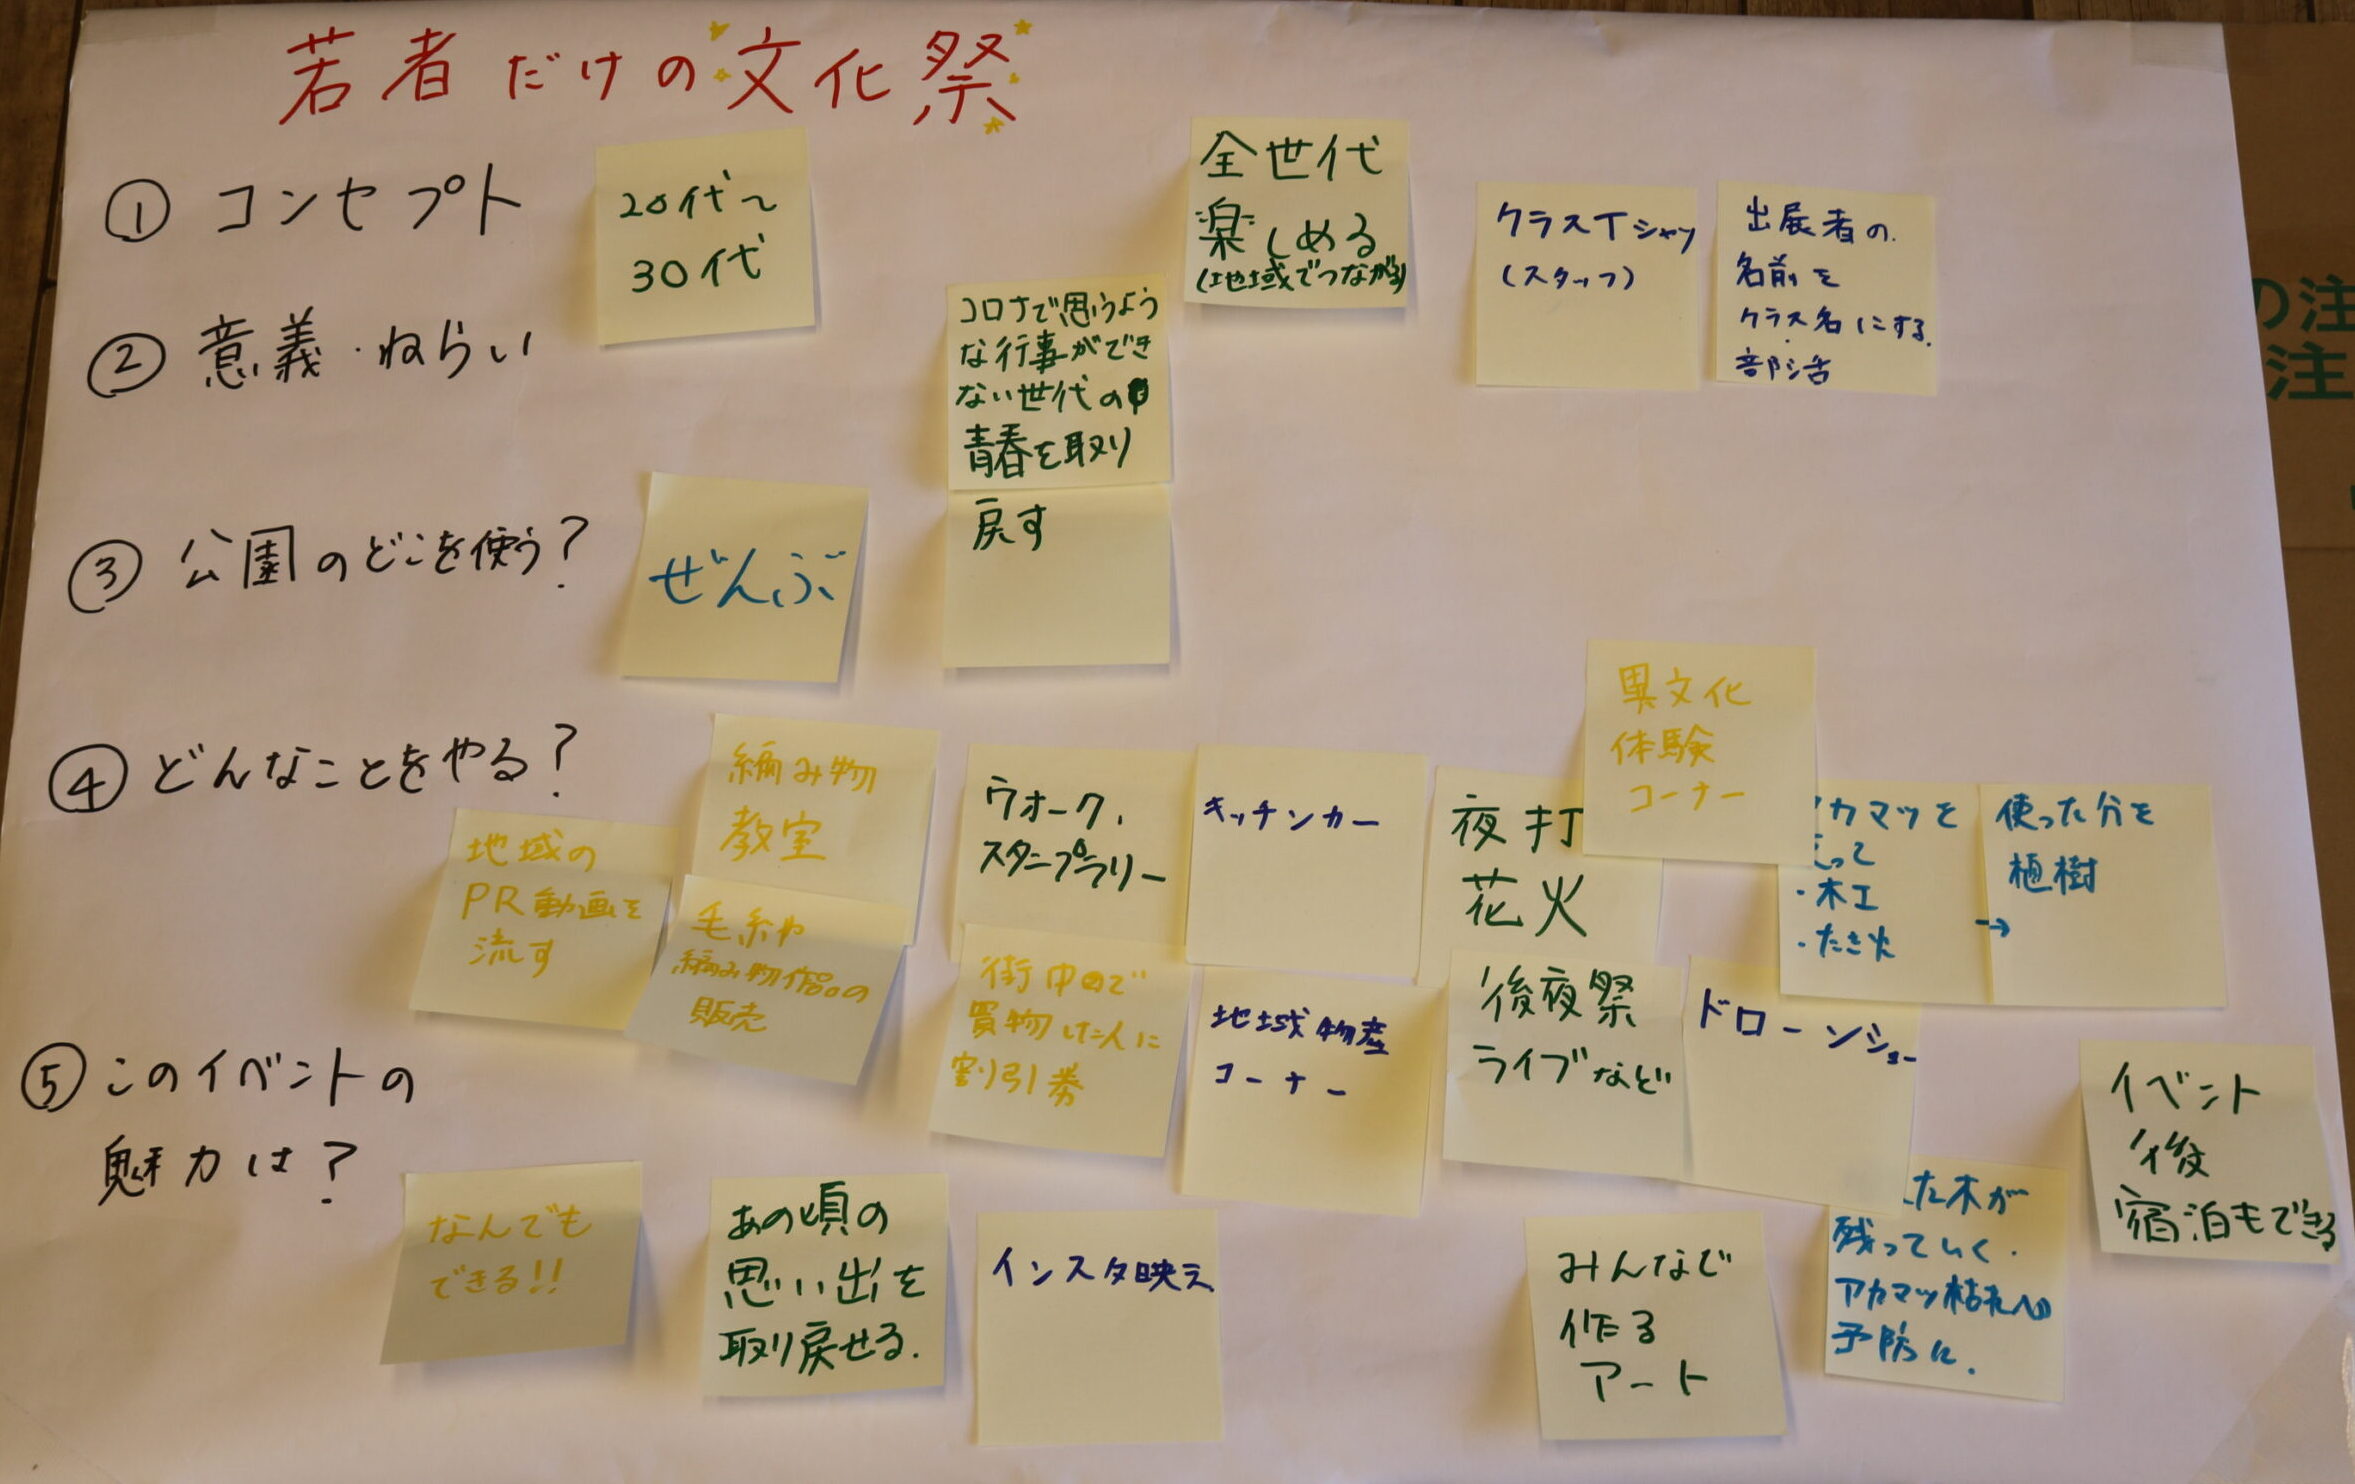 若者だけの文化祭
① コンセプト
20代〜
30代
全世代
楽しめる
(地域でつながる)
クラスTシャツ
(スタッフ)
出展者の
名前を
クラス名にする.
部活
② 意義・ねらい
コロナで思うよう
な行事ができ
ない世代の
青春を取り
戻す
③ 公園のどこを使う?
ぜんぶ
④ どんなことをやる?
地域の
PR動画を
流す
編み物
教室
毛糸や
編み物作品の
販売
ウォーク.
スタンプラリー
街中で
買物した人に
割引券
キッチンカー
地域物産
コーナー
夜打
花火
後夜祭
ライブなど
異文化
体験
コーナー
ドローンショー
カマツを
って
・木工
・たき火
→
使った分を
植樹
⑤ このイベントの
魅力は?
なんでも
できる!!
あの頃の
思い出を
取り戻せる.
インスタ映え
みんなで
作る
アート
た木が
残っていく.
アカマツ枯れへの
予防に.
イベント
後
宿泊もできる
の注
注